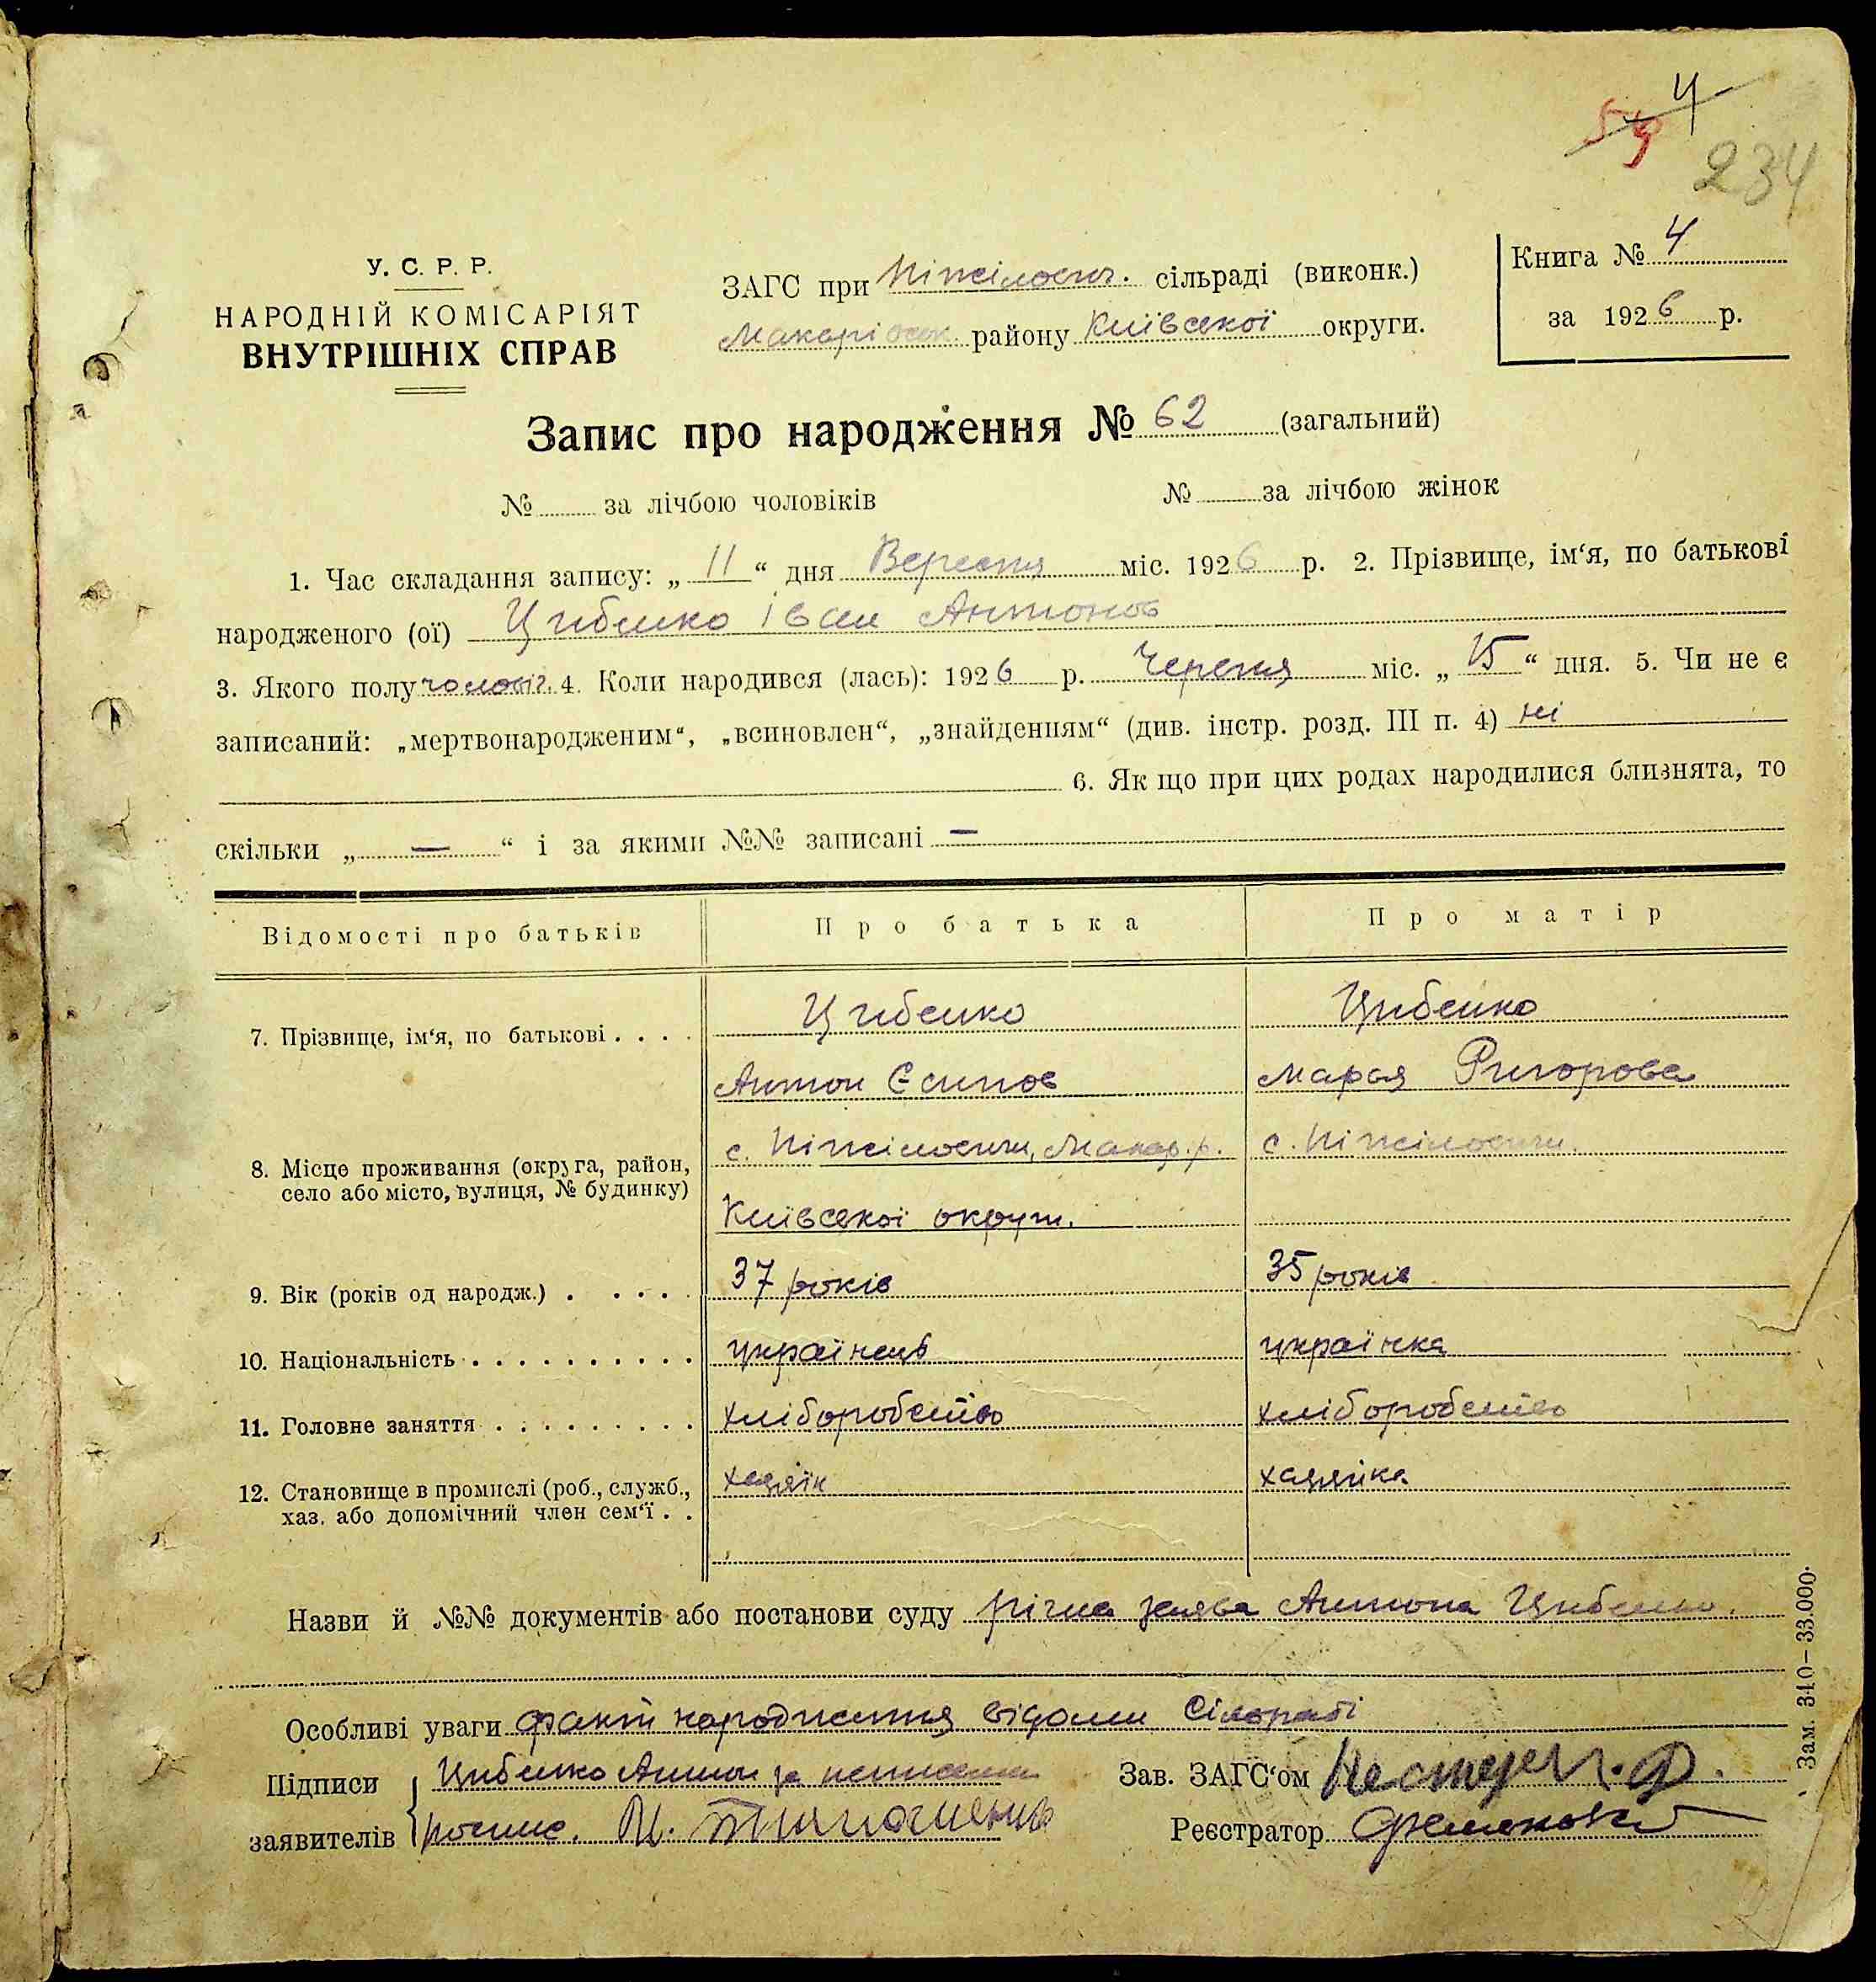 4
59
234
У. С. Р. Р.
НАРОДНІЙ КОМІСАРІЯТ
ВНУТРІШНІХ СПРАВ
ЗАГС при сільраді (виконк.)
Макарівськ. району Київської округи.
Книга № 4
за 1926 р.
Запис про народження № 62 (загальний)
№ за лічбою чоловіків № за лічбою жінок
1. Час складання запису: „ 11 “ дня Вересня міс. 1926 р. 2. Прізвище, ім‘я, по батькові
народженого (ої) Цибенко Іван Антонов
3. Якого полу чоловіч. 4. Коли народився (лась): 1926 р. Червня міс. „ 15 “ дня. 5. Чи не є
записаний: „мертвонародженим“, „всиновлен“, „знайденням“ (див. інстр. розд. III п. 4) ні
6. Як що при цих родах народилися близнята, то
скільки „ — “ і за якими №№ записані —
Відомості про батьків Про батька Про матір
7. Прізвище, ім‘я, по батькові . . . . Цибенко Цибенко
Антон Єсипов Марія Григорова
8. Місце проживання (округа, район, с. Макар. р. с.
село або місто, вулиця, № будинку)
Київської округи.
9. Вік (років од народж.) . . . . . 37 років 35 років
10. Національність . . . . . . . . . . українець українка
11. Головне заняття . . . . . . . . . хліборобство хліборобство
12. Становище в промислі (роб., служб., хазяїн хазяйка
хаз. або допомічний член сем‘ї . .
Назви й №№ документів або постанови суду річна заява Антона Цибенко.
Особливі уваги факт народження відомий Сільраді
Підписи Цибенко Антон за Зав. ЗАГС‘ом
заявителів Реєстратор
Зам. 310–33.000.